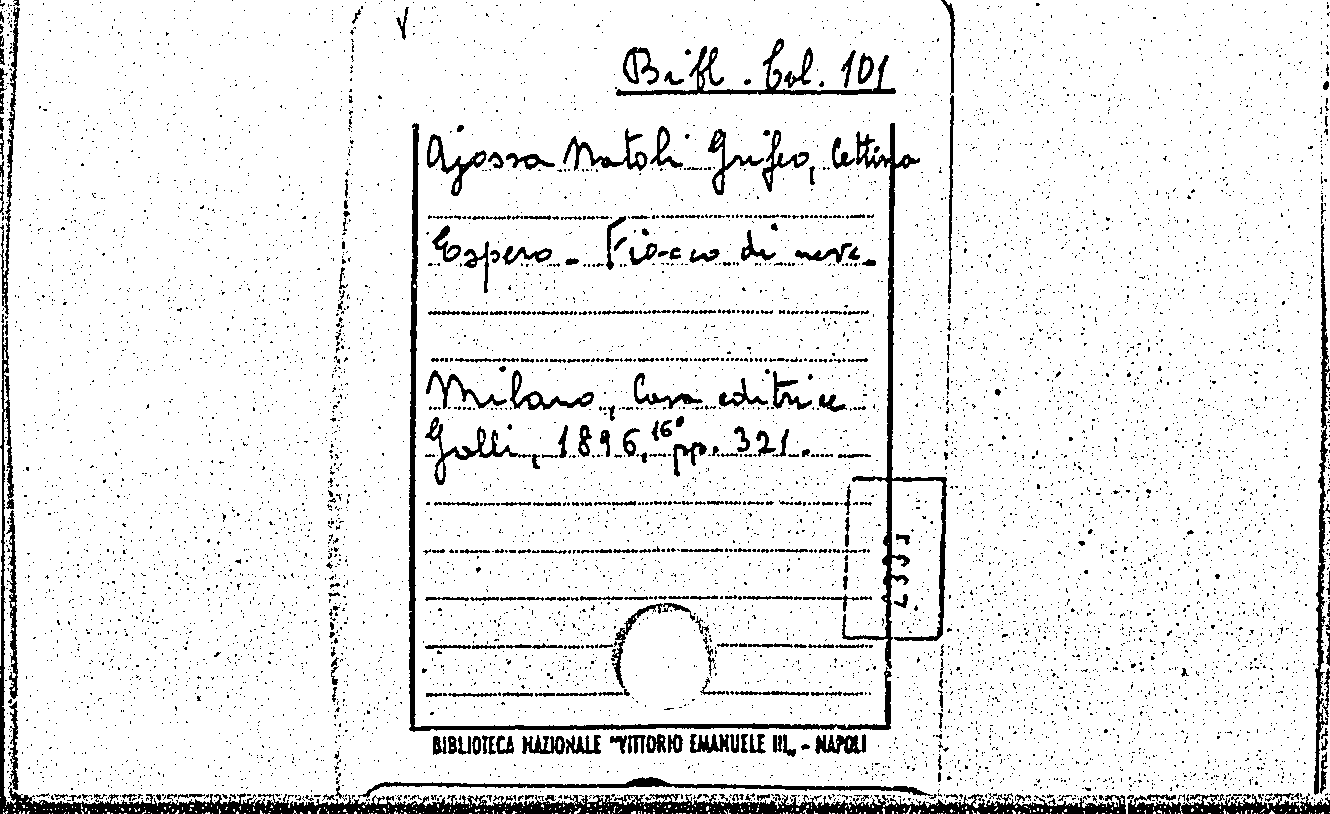 Bibl. Col. 101
Ajossa Natoli Grifeo, Cettina
Espero - Fiocco di neve.
Milano, Casa editrice
Galli, 1896, 16° pp. 321.
BIBLIOTECA NAZIONALE "VITTORIO EMANUELE III„ - NAPOLI